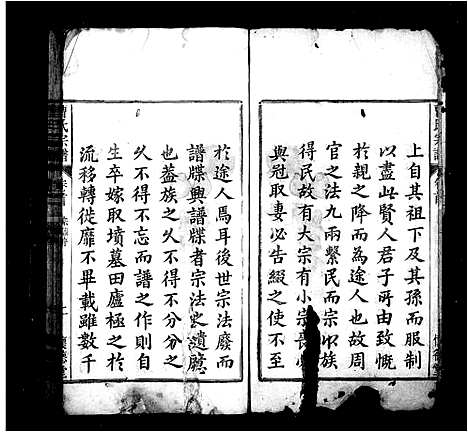 上自其祖下及其孫而服制
以盡此賢人君子所由致慨
於親之降而為途人也故周
官之法九兩繫民而宗以族
得民故有大宗有小宗喪
與冠取妻必告綴之使不至
於途人焉耳後世宗法廢而
譜牒興譜牒者宗法之遺
也蓋族之久不得不分分之
久不得不忘而譜之作則自
生卒嫁取墳墓田廬極之於
流移轉徙靡不畢載雖數千
曹氏宗譜